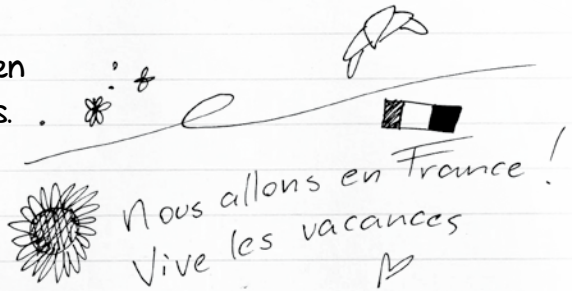 en
s.
Nous allons en France !
Vive les vacances